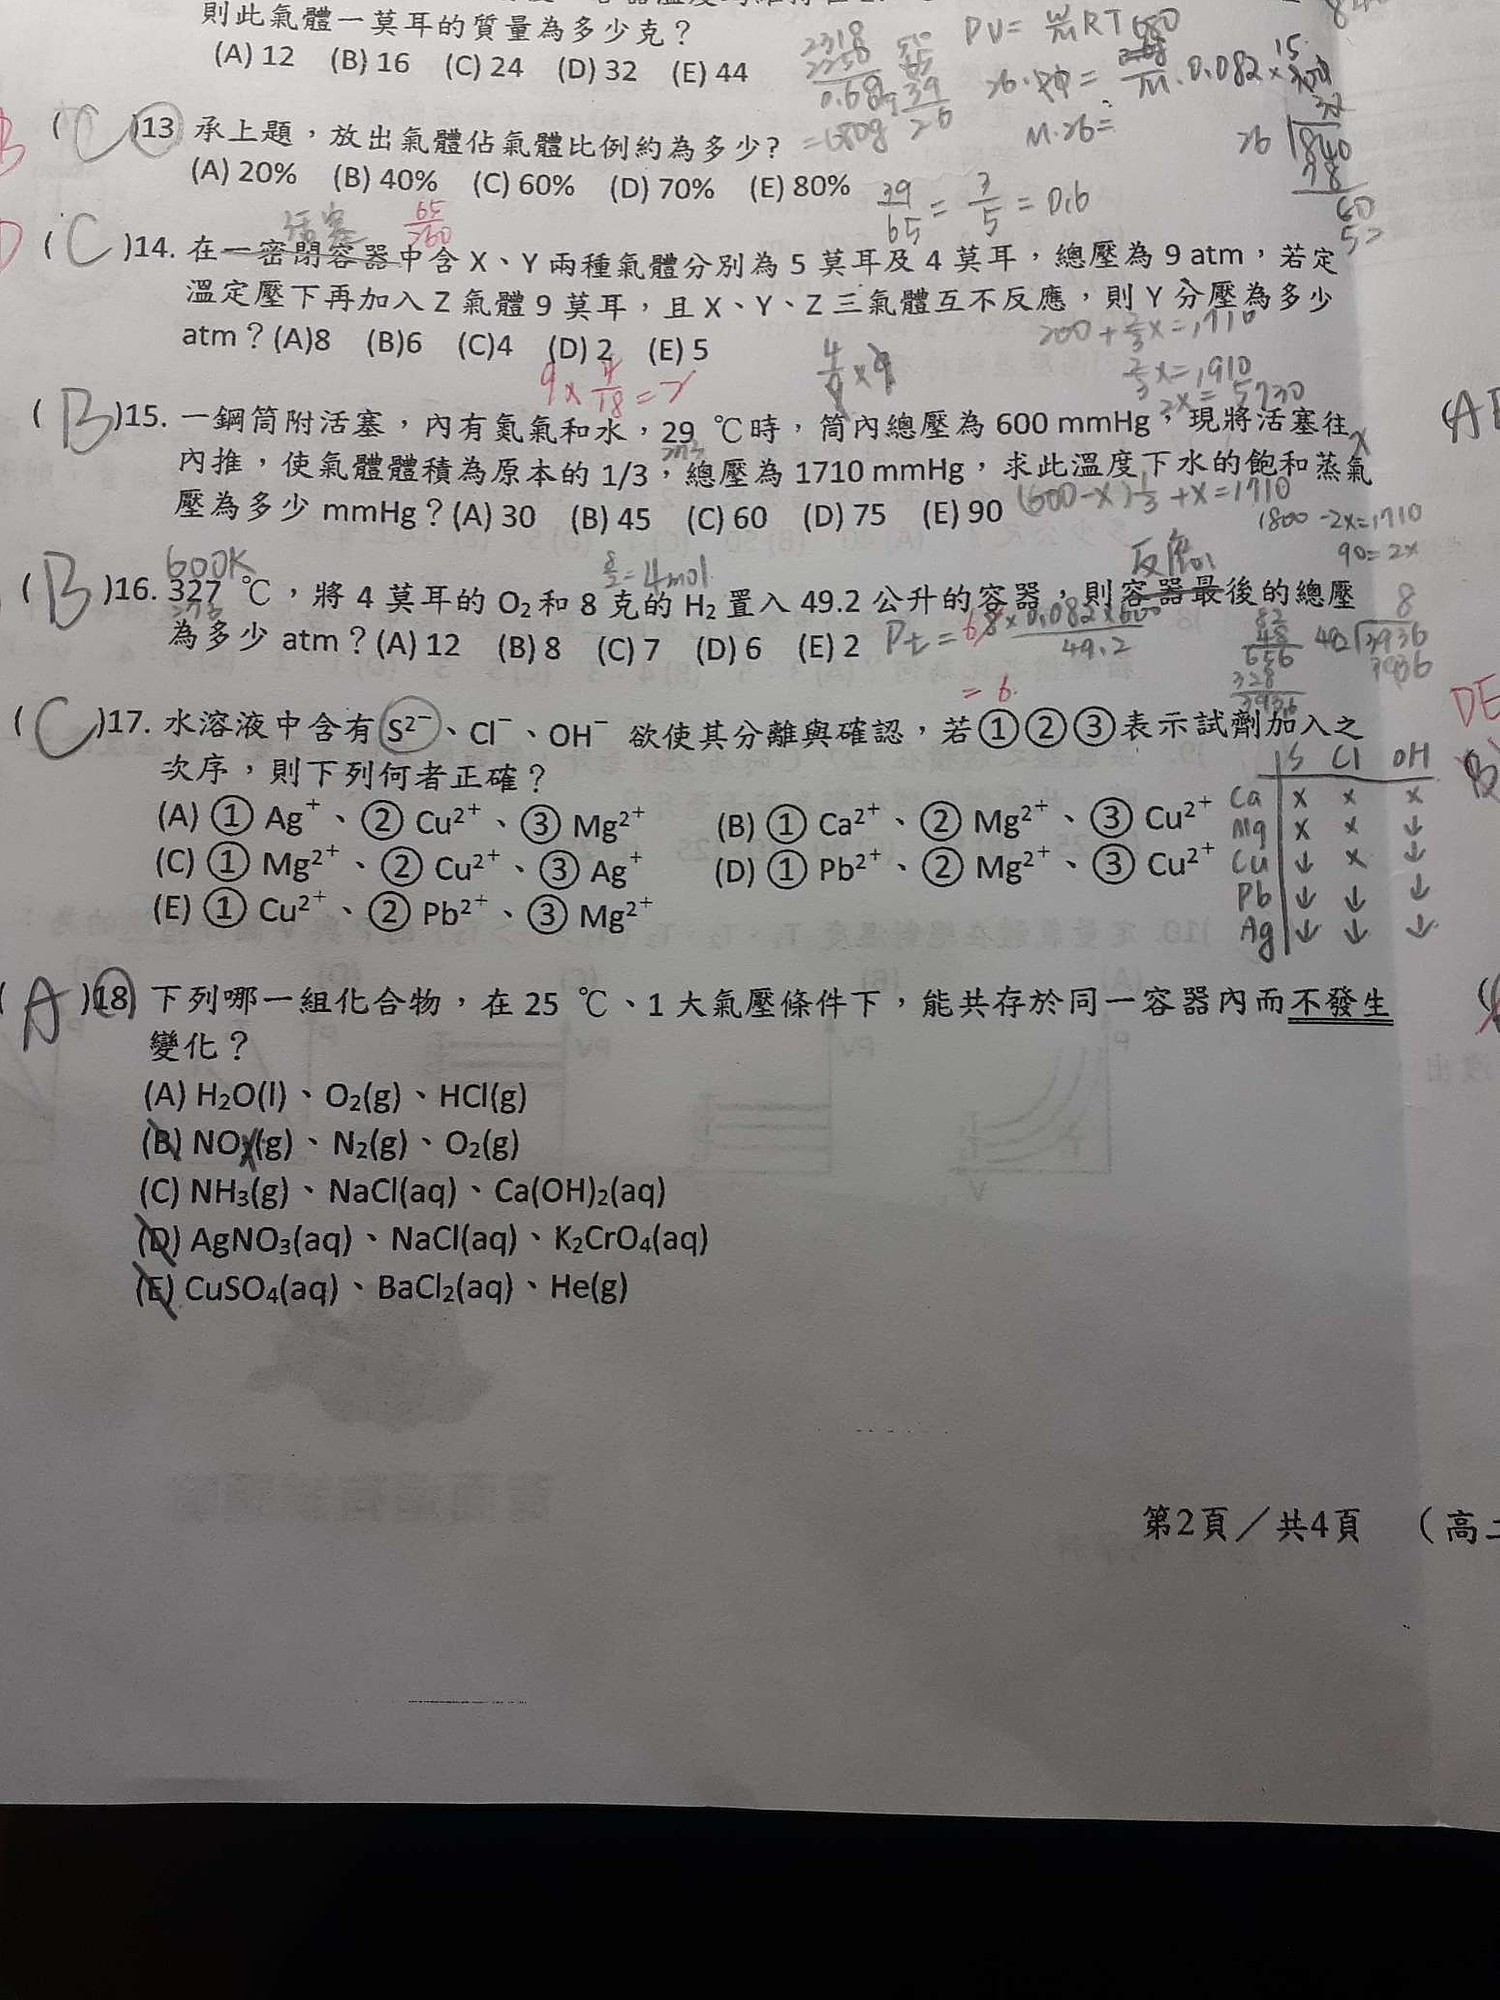 則此氣體一莫耳的質量為多少克？
(A) 12 (B) 16 (C) 24 (D) 32 (E) 44
( C )13. 承上題，放出氣體佔氣體比例約為多少?
(A) 20% (B) 40% (C) 60% (D) 70% (E) 80%
39/65 = 3/5 = 0.6
活塞
65/260
( C )14. 在一密閉容器中含 X、Y 兩種氣體分別為 5 莫耳及 4 莫耳，總壓為 9 atm，若定
溫定壓下再加入 Z 氣體 9 莫耳，且 X、Y、Z 三氣體互不反應，則 Y 分壓為多少
atm？(A)8 (B)6 (C)4 (D) 2 (E) 5
200 + 2/3 x = 1710
2/3 x = 1910
2x = 5730
9 × 4/18 = 2
4/9 × 9
( B )15. 一鋼筒附活塞，內有氮氣和水，29 ℃時，筒內總壓為 600 mmHg，現將活塞往
內推，使氣體體積為原本的 1/3，總壓為 1710 mmHg，求此溫度下水的飽和蒸氣
壓為多少 mmHg？(A) 30 (B) 45 (C) 60 (D) 75 (E) 90
1800 - 2x = 1710
90 = 2x
600K
8/2 = 4mol
反應
( B )16. 327 ℃，將 4 莫耳的 O₂ 和 8 克的 H₂ 置入 49.2 公升的容器，則容器最後的總壓
273
為多少 atm？(A) 12 (B) 8 (C) 7 (D) 6 (E) 2
= 6
( C )17. 水溶液中含有 S²⁻、Cl⁻、OH⁻ 欲使其分離與確認，若①②③表示試劑加入之
次序，則下列何者正確？
(A) ① Ag⁺、② Cu²⁺、③ Mg²⁺ (B) ① Ca²⁺、② Mg²⁺、③ Cu²⁺
(C) ① Mg²⁺、② Cu²⁺、③ Ag⁺ (D) ① Pb²⁺、② Mg²⁺、③ Cu²⁺
(E) ① Cu²⁺、② Pb²⁺、③ Mg²⁺
S Cl OH
Ca × × ×
Mg × × ↓
Cu ↓ × ↓
Pb ↓ ↓ ↓
Ag ↓ ↓ ↓
( A )18. 下列哪一組化合物，在 25 ℃、1 大氣壓條件下，能共存於同一容器內而不發生
變化？
(A) H₂O(l)、O₂(g)、HCl(g)
(B) NO(g)、N₂(g)、O₂(g)
(C) NH₃(g)、NaCl(aq)、Ca(OH)₂(aq)
(D) AgNO₃(aq)、NaCl(aq)、K₂CrO₄(aq)
(E) CuSO₄(aq)、BaCl₂(aq)、He(g)
第2頁／共4頁 （高二